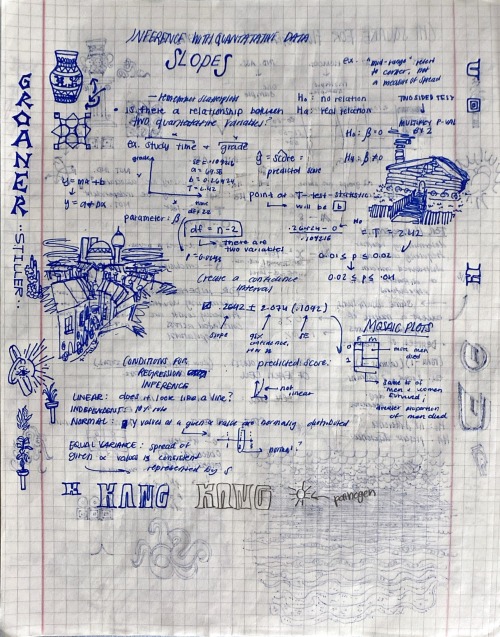 INFERENCE WITH QUANTITATIVE DATA
SLOPES
ex. "mid-range" refers
to center, not
a measure of spread
GROANER
:: STILLER ::
— remember scatterplots
• is there a relationship between
two quantitative variables?
H₀: no relation
Hₐ: real relation
TWO SIDED TEST
MULTIPLY P-VAL
BY 2
H₀: β = 0
Hₐ: β ≠ 0
ex. study time + grade
grades
T = 2.42
df = 28
ŷ = score =
predicted score
y = mx + b
y = a + bx
point or T-test statistic
will be b
parameter: β
df = n-2
there are
two variables
.26424 - 0
= T = 2.42
0.01 ≤ p ≤ 0.02
0.02 ≤ p ≤ .04
Create a confidence
interval
.2642 ± 2.074 (.1092)
slope
95%
confidence,
SE
predicted score.
MOSAIC PLOTS
F M
more men
died
same # of
men + women
survived,
smaller proportion
of men died
CONDITIONS FOR
REGRESSION
INFERENCE
LINEAR: does it look like a line?
not
linear
INDEPENDENT: 10% rule
NORMAL: y values at a given x value are normally distributed
normal?
EQUAL VARIANCE: spread of
given x values is consistent
represented by S
H KANG KANG
pathogen